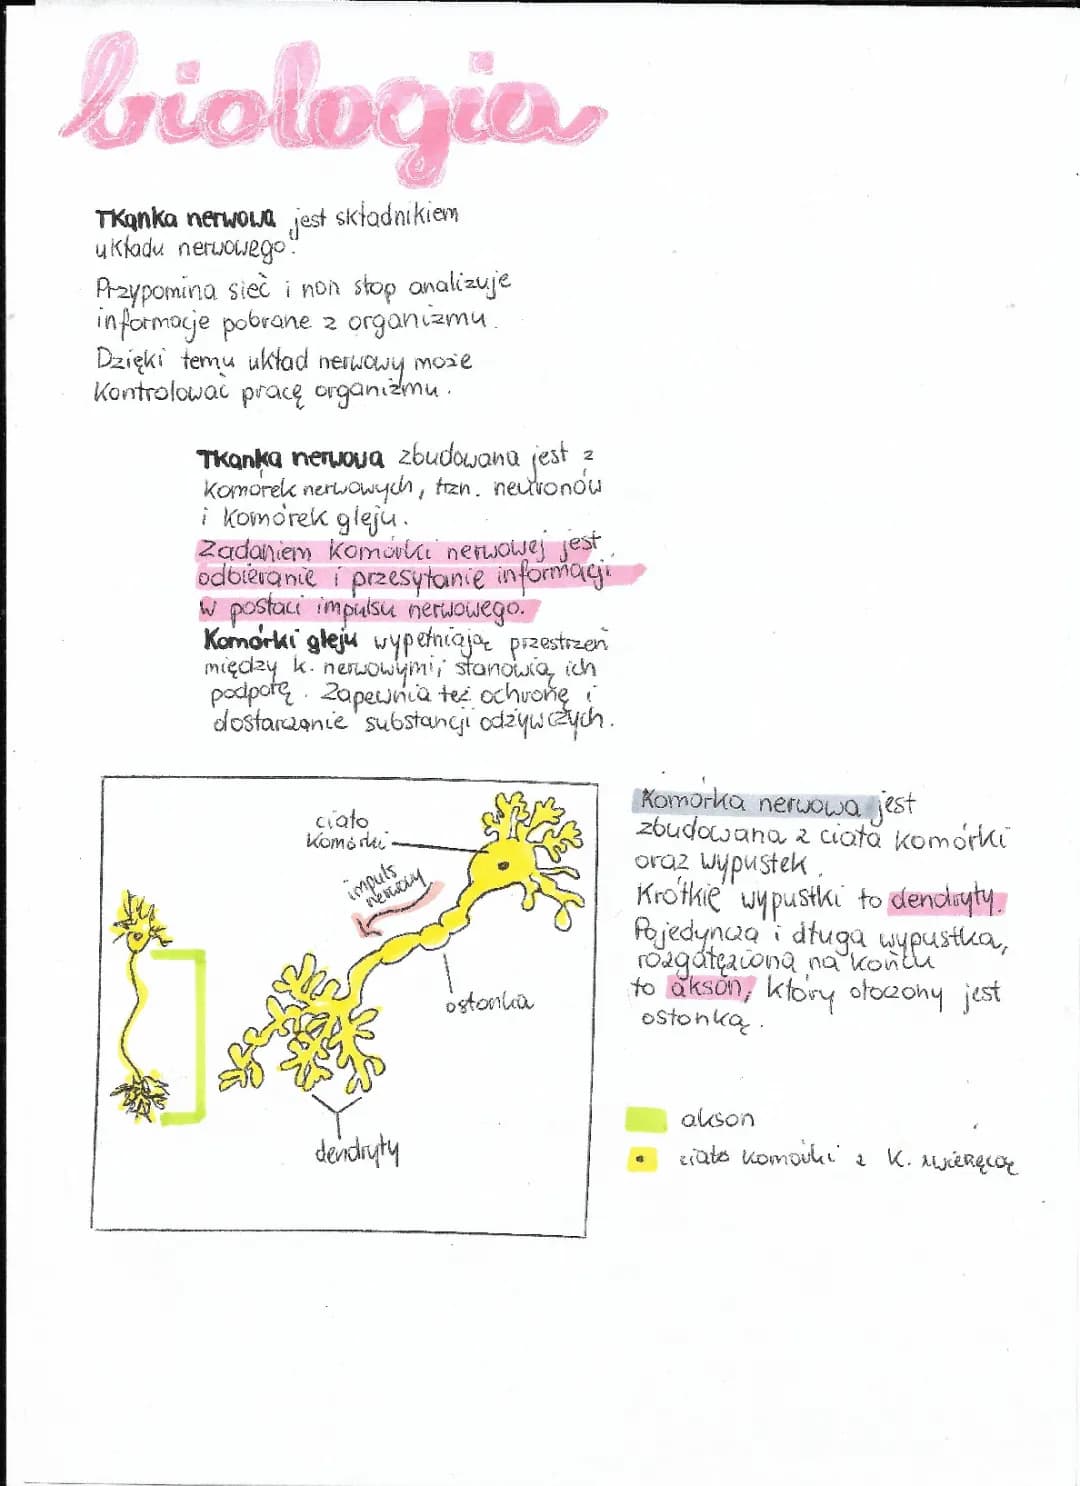 biologia
Tkanka nerwowa jest składnikiem
układu nerwowego.
Przypomina sieć i non stop analizuje
informacje pobrane z organizmu.
Dzięki temu układ nerwowy może
kontrolować pracę organizmu.
Tkanka nerwowa zbudowana jest z
komórek nerwowych, tzn. neuronów
i komórek gleju.
Zadaniem komórki nerwowej jest
odbieranie i przesyłanie informacji
w postaci impulsu nerwowego.
Komórki gleju wypełniają przestrzeń
między k. nerwowymi i stanowią ich
podporę. Zapewnia też ochronę i
dostarczanie substancji odżywczych.
ciało
komórki
impuls
nerwowy
osłonka
dendryty
Komórka nerwowa jest
zbudowana z ciała komórki
oraz wypustek.
Krótkie wypustki to dendryty.
Pojedyncza i długa wypustka,
rozgałęziona na końcu
to akson, który otoczony jest
osłonką.
akson
ciało komórki z k.